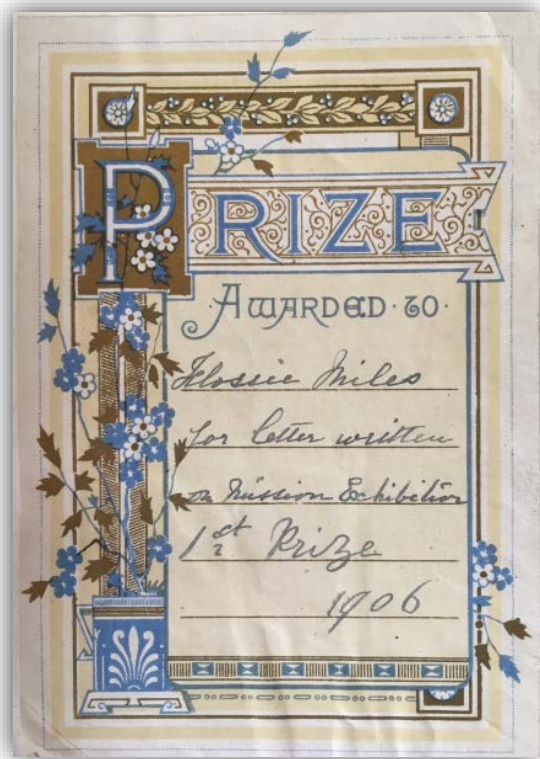 PRIZE
AWARDED TO
Flossie Miles
for letter written
on Mission Exhibition
1st Prize
1906